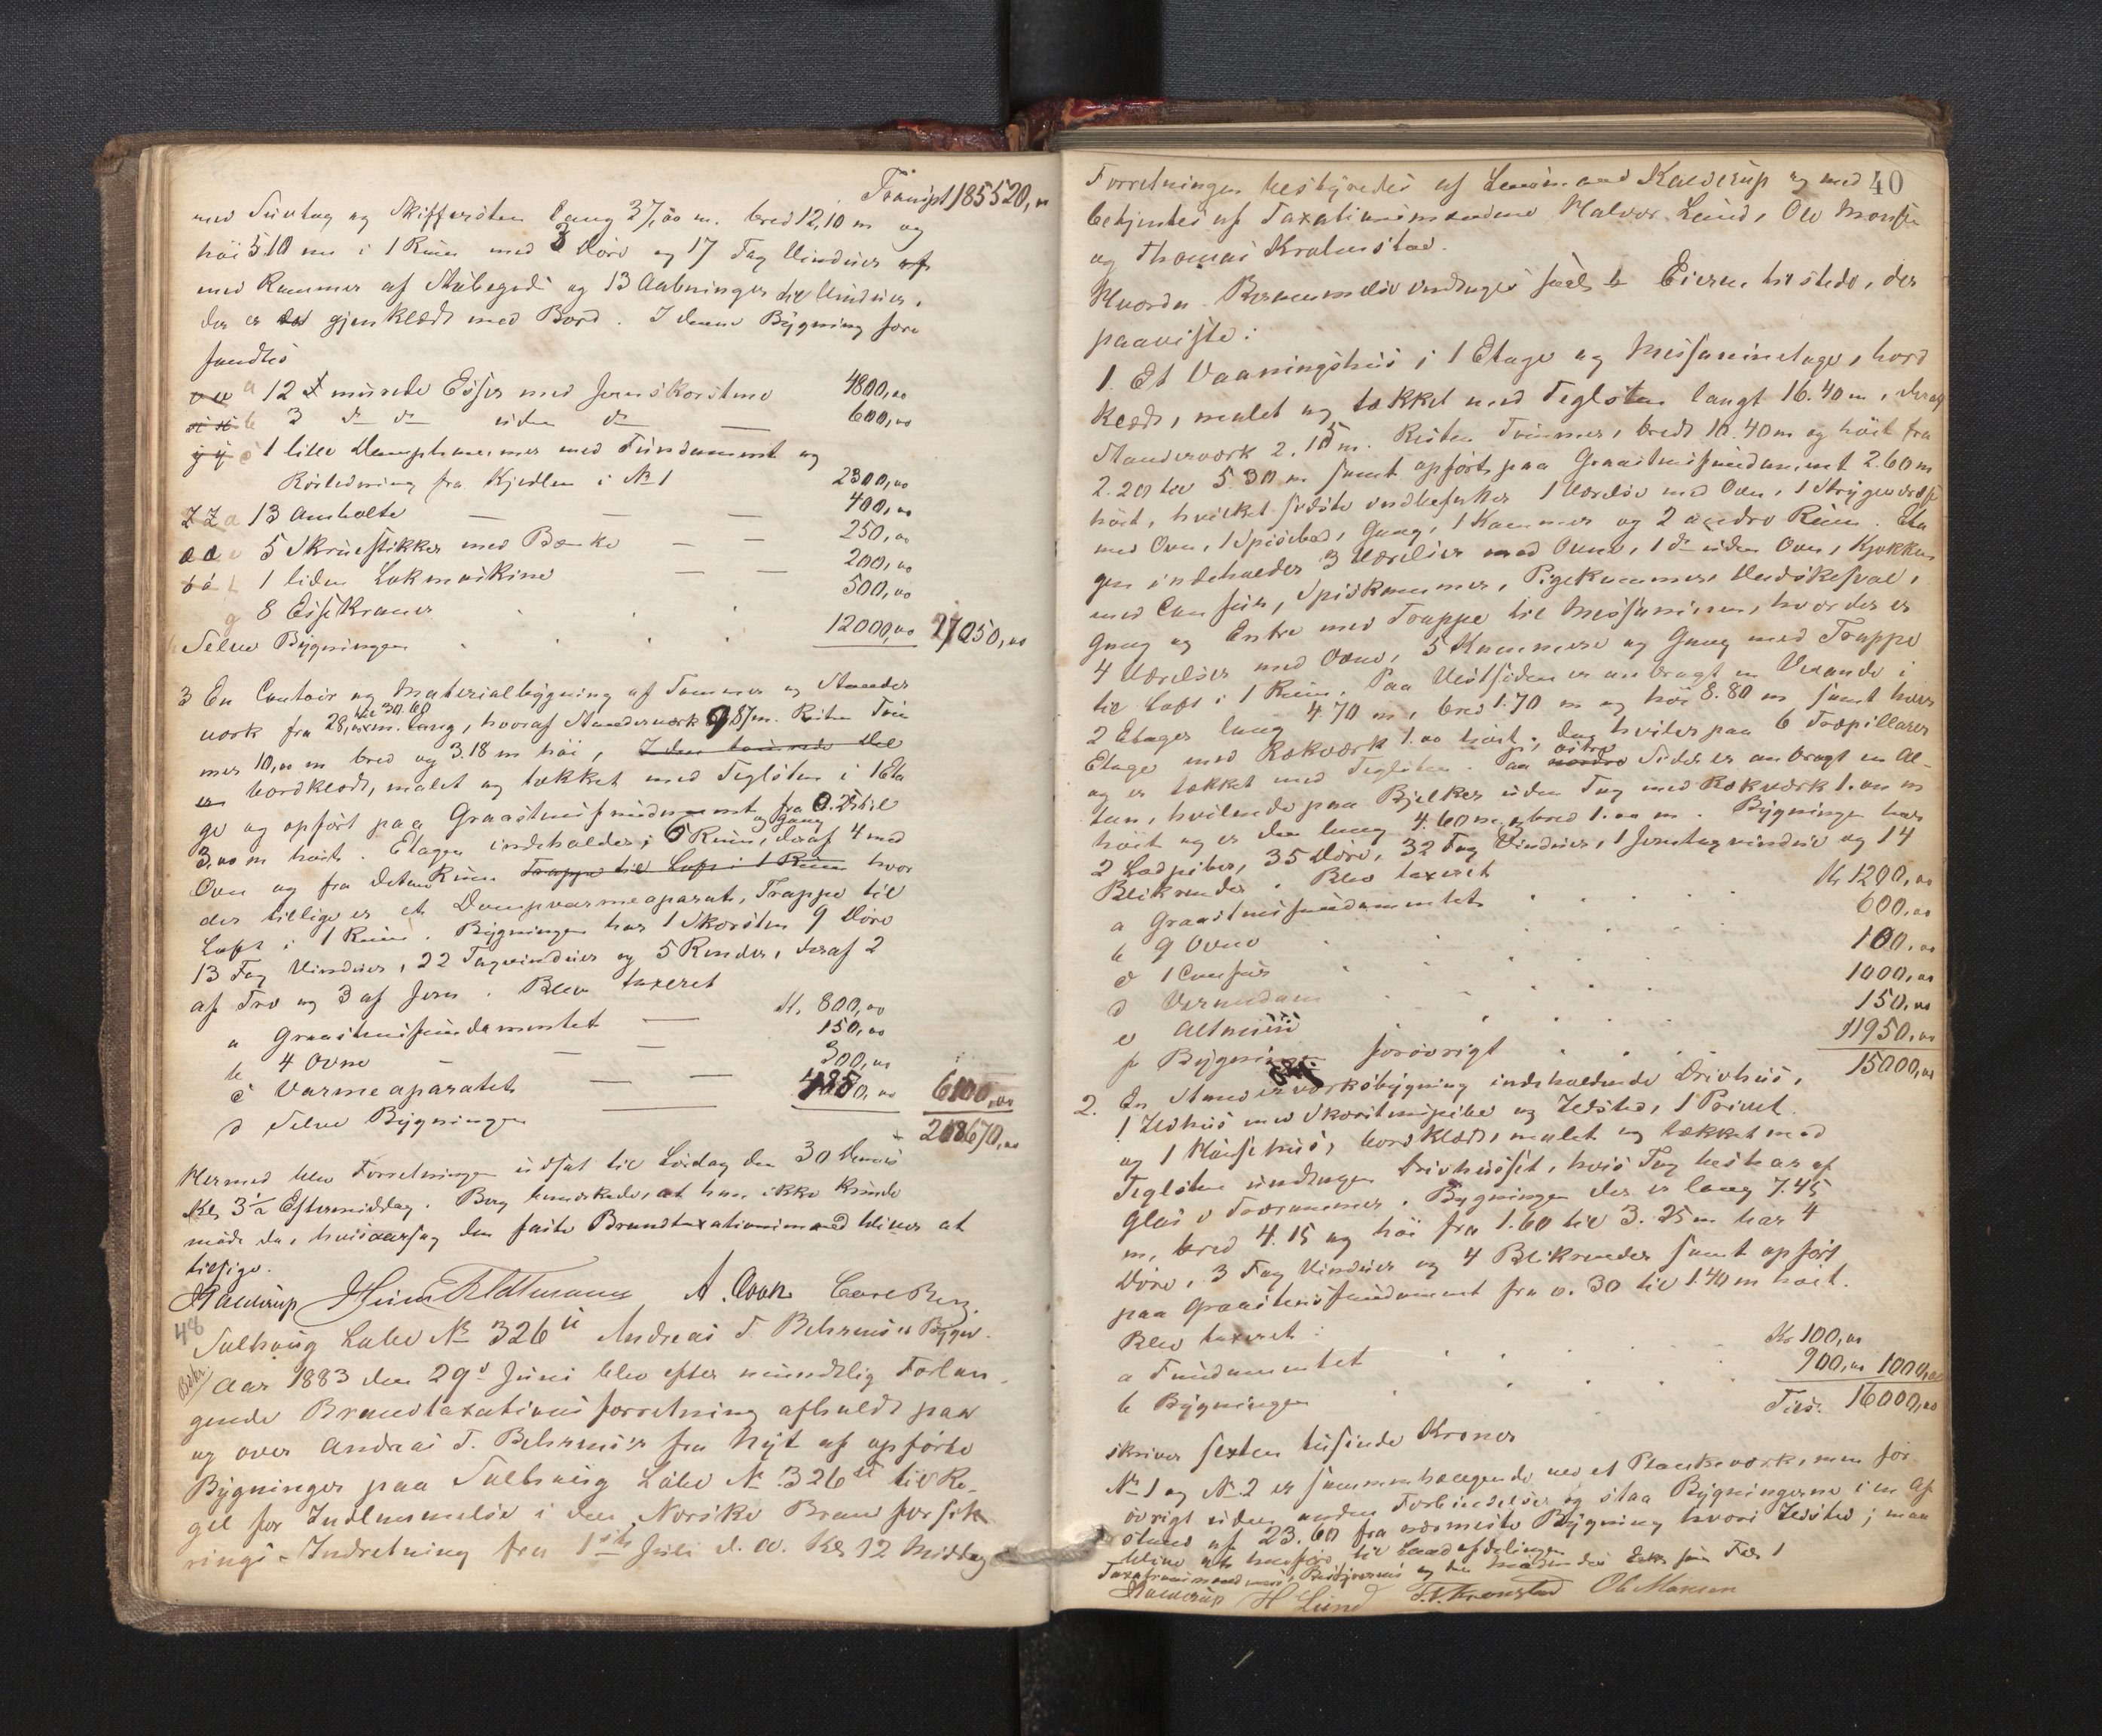 Transpt 185520,00
med Suutag og Skiffersten lang 37,00 m. bred 12,10 m og
höi 510 m i 1 Rum med 3 Döre og 17 Fag Vinduer af
med Rammer af Støbegods og 13 Aabninger for Vinduer,
der er gjenklædt med Bord. I denne Bygning fore
fandtes
a 12 murede Esser med Jernskorstene 4800,00
b 3 do do uden do — 600,00
c 1 lille Damphammer med Fundament og
Rørledning fra Kjedlen i No 1 2300,00
d 13 Ambolte — — — 400,00
e 5 Skruestikker med Bænke — — 250,00
f 1 liden Lokmaskine — — 200,00
g 8 Essekraner 500,00
h Selve Bygningen 12000,00 21050,00
3 En Contoir og Materialbygning af Tømmer og Stander
værk fra 28,00 til 30.60 m. lang, hvoraf Standerværk 9,87 m. Resten Tøm
mer 10,00 m bred og 3.18 m höi, I den tømrede Del
er bordklædt, malet og tækket med Teglsten i 1 Eta
ge og opført paa Graastensfundament fra 0.25 til
3,00 m höit. Etagen indeholder 6 Rum og gang, deraf 4 med
Ovn og fra dette Rum Trappe til Loft i 1 Rum hvor
der tillige er et Dampvarmeaparat, Trappe til
Loft i 1 Rum. Bygningen har 1 Skorsten 9 Døre
13 Fag Vinduer, 22 Tagvinduer og 5 Render, deraf 2
af Træ og 3 af Jern. Blev taxeret
a Graastensfundamentet — Kr. 800,00
b 4 Ovne — — — 150,00
c Varmeaparatet — — 300,00
d Selve Bygningen — 4850,00 6100,00
208670,00
Hermed blev Forretningen udsat til Lørdag den 30 Dennes
Kl. 3½ Eftermiddag. Berg bemærkede, at han ikke kunde
møde da, hvisaarsag den faste Brandtaxationsmand bliver at
tilsige.
Kalderup Heinr Feldtmann A. Cook Carl Berg.
48 Solhaug Løbe No 326 u Andreas T. Behrens's Bygn.
Aar 1883 den 29de Juni blev efter mundtlig Forlan-
gende Brandtaxationsforretning afholdt paa
og over Andreas T. Behrens's fra Nyt af opførte
Bygninger paa Solhaug Løbe No. 326 u til Re-
gel for Indlemmelse i den Norske Brandforsik
rings-Indretning fra 1ste Juli d. A. Kl 12 Middag
40
Forretningen bestyredes af Lensmand Kalderup og med
betjentes af Taxationsmændene Halvor Lund, Ole Monsen
og Thomas Kronstad.
Hvorda Berammelse undtages saals Eieren tilstede, der
paaviste:
1. Et Vaaningshus i 1 Etage og Messaninetage, bord
klædt, malet og tækket med Teglsten langt 16.40 m, deraf
Standerværk 2,15 m. Resten Tømmer, bredt 10.40 m og höit fra
2.20 til 5.30 m samt opført paa Graastensfundament 2.60 m
höit, hvilket sidste indbefatter 1 Værelse med Ovn, 1 Strygeværelse
med Ovn, 1 Spisebod, Gang, 1 Kammer og 2 andre Rum. Eta
gen indeholder 3 Værelser med Ovne, 1 do uden Ovn, Kjøkken
med Comfur, Spiskammer, Pigekammer, Vadskesval,
Gang og Entre med Trappe til Messaninen, hvor der er
4 Værelser med Ovne, 5 Kammere og Gang med Trappe
til Loft i 1 Rum. Paa Vestsiden er anbragt en Veranda i
2 Etager lang 4.70 m, bred 1.70 m og höi 8.80 m samt hver
Etage med Rækværk 1.00 höit, den hviler paa 6 Træpillarer
og er tækket med Teglsten. Paa østre Side er anbragt en Al-
tan, hvilende paa Bjelker uden Tag med Rækværk 1.00 m
höit og er den lang 4.60 m, bred 1.00 m. Bygningen har
2 Ladpiber, 35 Døre, 32 Fag Vinduer, 1 Jerntagvindue og 14
Blikrender. Blev taxeret
a Graastensfundamentet Kr 1200,00
b 9 Ovne 600,00
c 1 Comfur 100,00
d Verandaen 1000,00
e Altanen 150,00
f Bygningen forøvrigt 11950,00
15000,00
2. En Standerværksbygning indeholdende Drivhus,
1 Ildhus med Skorstenspibe og Ildsted, 1 Privet
og 1 Hønsehus, bordklædt, malet og tækket med
Teglsten undtagen Drivhuset, hvis Tag bestaar af
Glas i Trærammer. Bygningen der er lang 7.45
m, bred 4.15 og höi fra 1.60 til 3.25 m har 4
Døre, 3 Fag Vinduer og 4 Blikrender samt opført
paa Graastensfundament fra 0.30 til 1.40 m höit.
Blev taxeret:
a Fundamentet Kr 100,00
b Bygningen 900,00 1000,00
Tils. 16000,00
skriver sexten tusinde Kroner
No 1 og No 2 er sammenhængende ved et Plankeværk, men for
øvrigt uden anden Forbindelse og staa Bygningerne i en Af
stand af 23.60 fra nærmeste Bygning hvori Ildsted; maa
blive at henføre til Landafdelingen
Kalderup H Lund T. Kronstad Ole Monsen